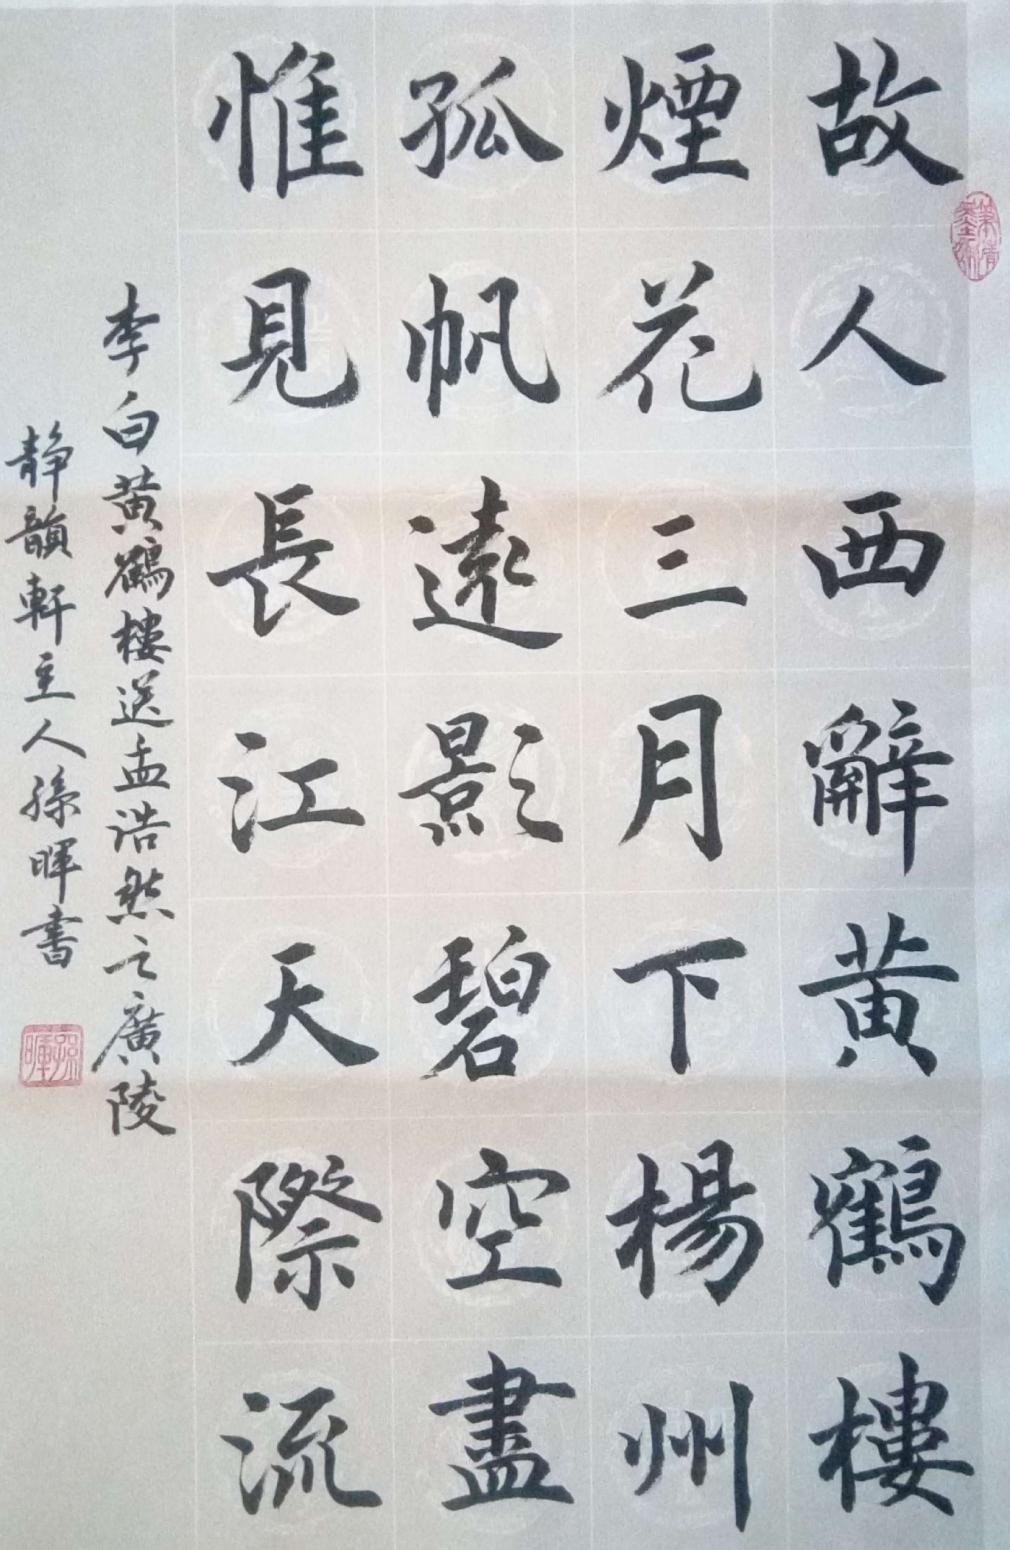 故人西辭黄鶴樓
煙花三月下楊州
孤帆遠影碧空盡
惟見長江天際流
李白黄鶴樓送孟浩然之廣陵
静韻軒主人孫暉書
孫暉